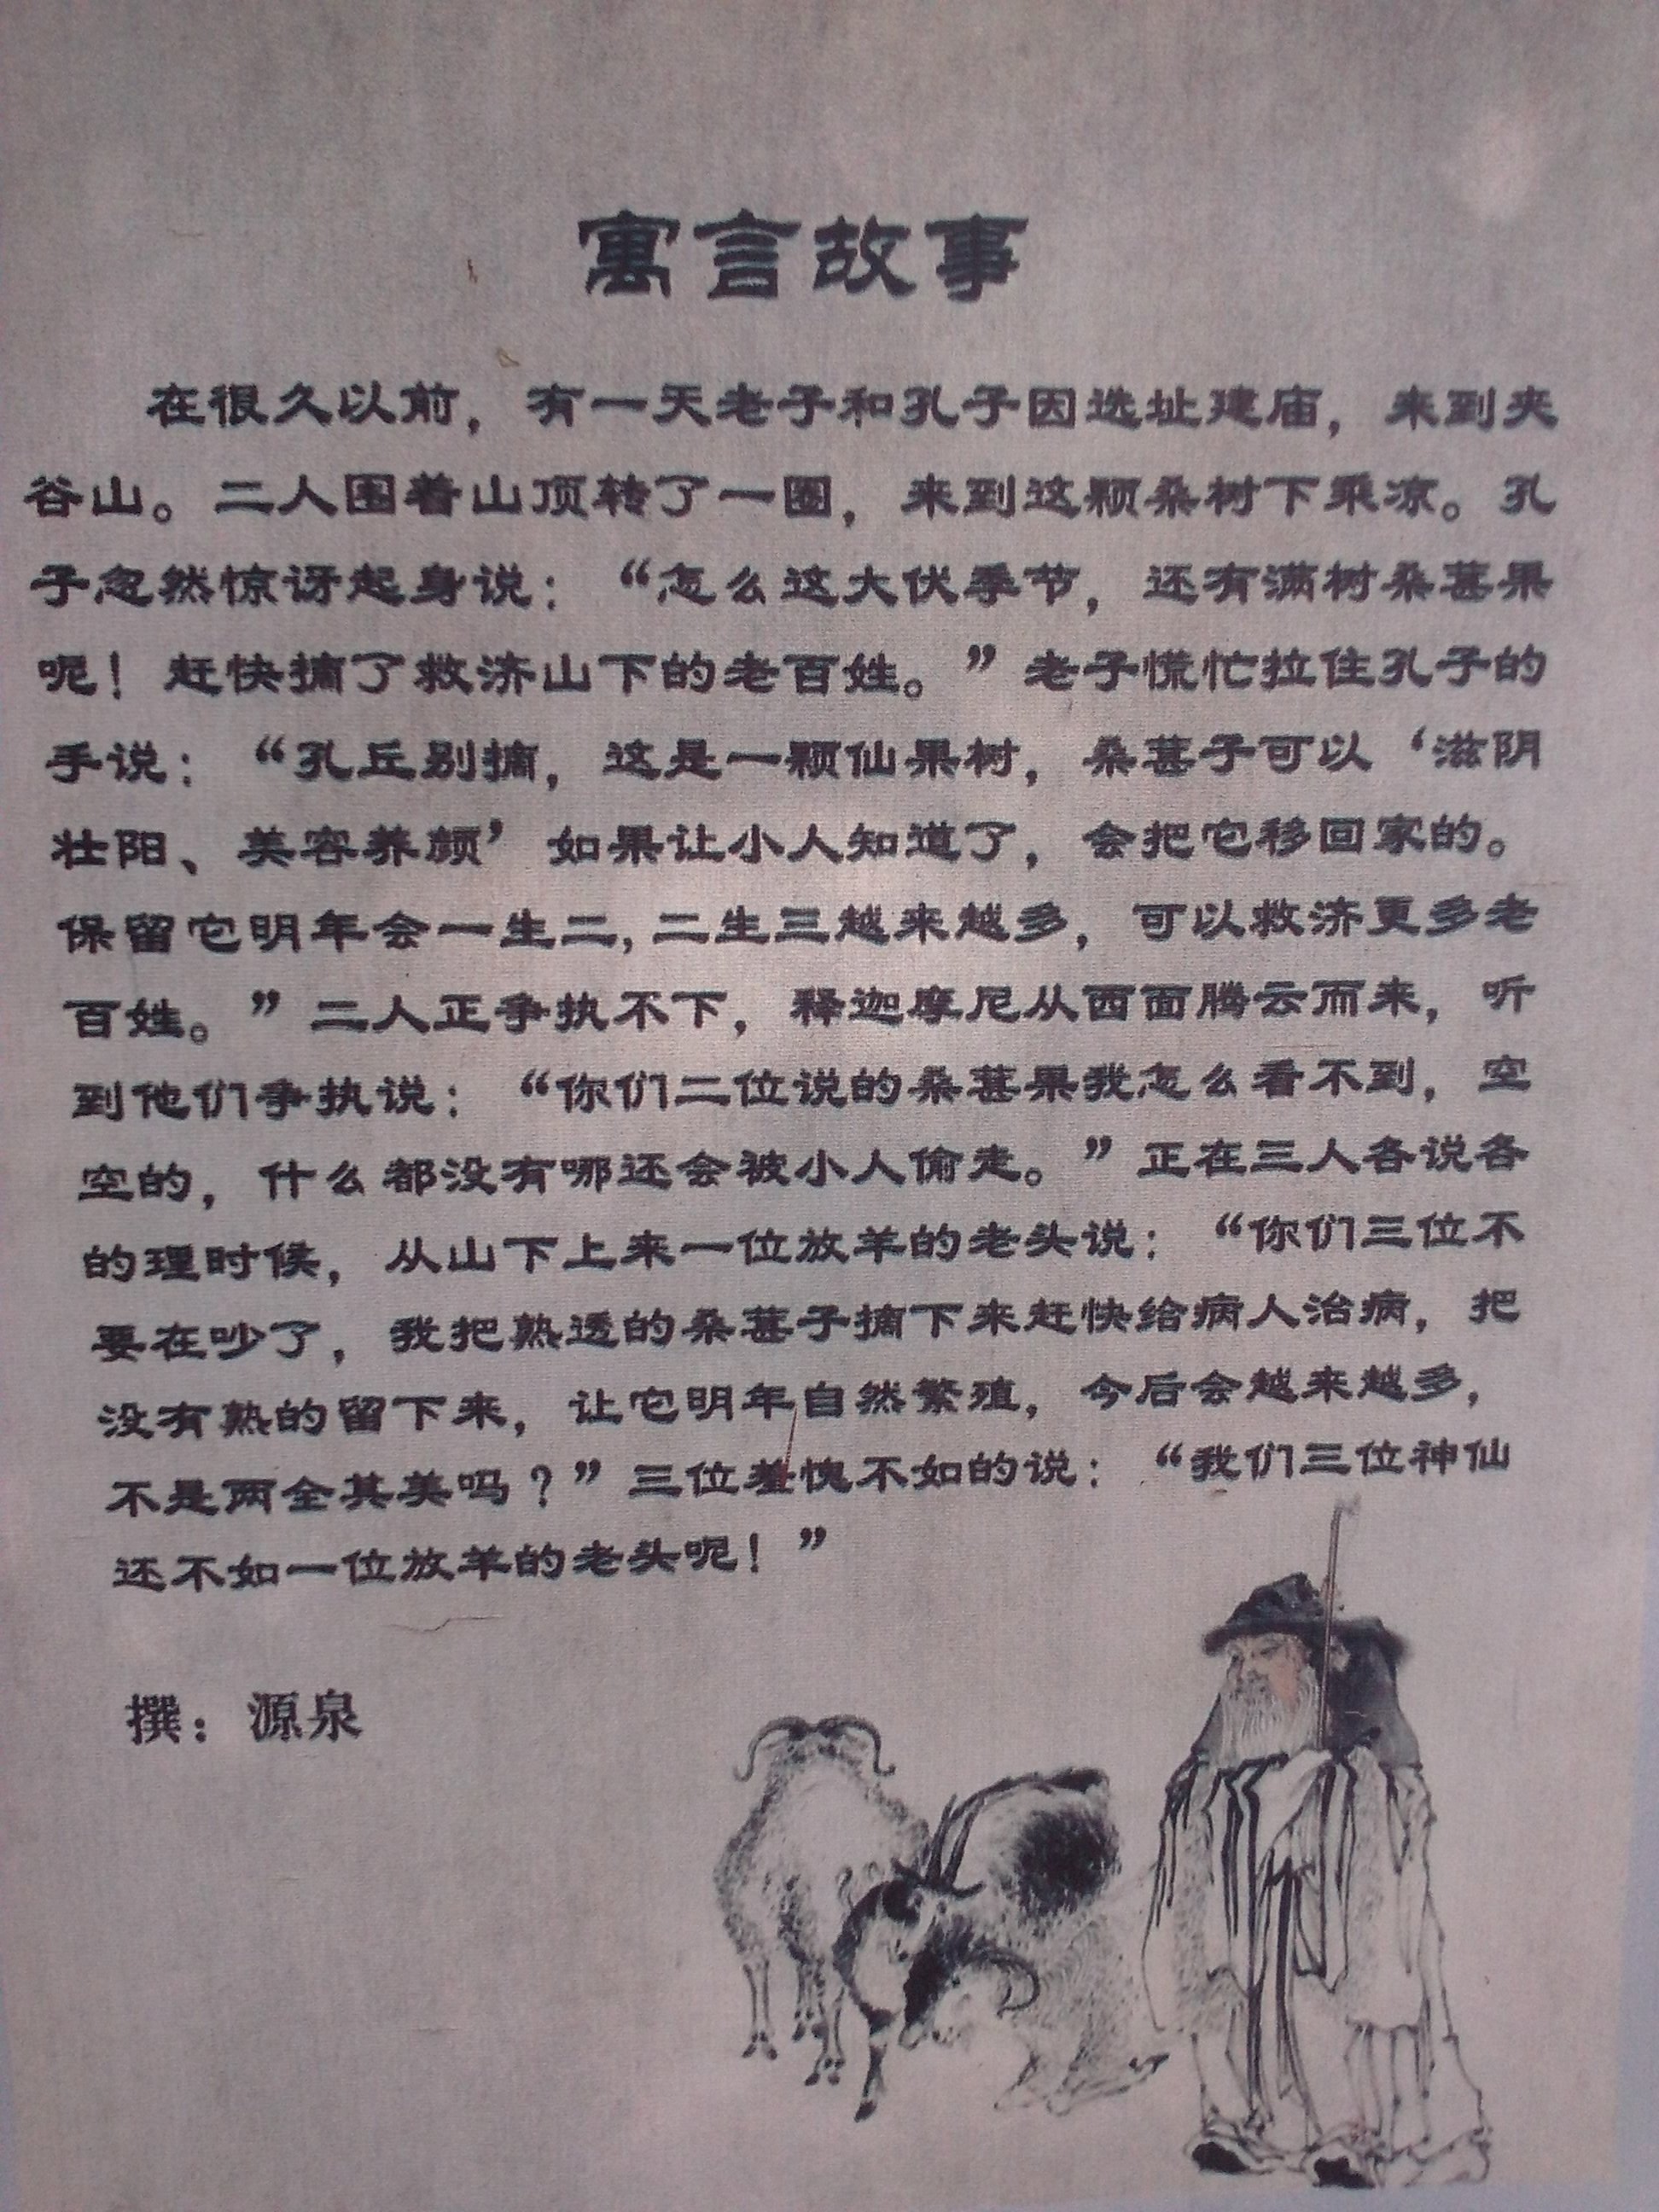 寓言故事
在很久以前，有一天老子和孔子因选址建庙，来到夹
谷山。二人围着山顶转了一圈，来到这颗桑树下乘凉。孔
子忽然惊讶起身说：“怎么这大伏季节，还有满树桑葚果
呢！赶快摘了救济山下的老百姓。”老子慌忙拉住孔子的
手说：“孔丘别摘，这是一颗仙果树，桑葚子可以‘滋阴
壮阳、美容养颜’如果让小人知道了，会把它移回家的。
保留它明年会一生二,二生三越来越多，可以救济更多老
百姓。”二人正争执不下，释迦摩尼从西面腾云而来，听
到他们争执说：“你们二位说的桑葚果我怎么看不到，空
空的，什么都没有哪还会被小人偷走。”正在三人各说各
的理时候，从山下上来一位放羊的老头说：“你们三位不
要在吵了，我把熟透的桑葚子摘下来赶快给病人治病，把
没有熟的留下来，让它明年自然繁殖，今后会越来越多，
不是两全其美吗？”三位羞愧不如的说：“我们三位神仙
还不如一位放羊的老头呢！”
撰：源泉